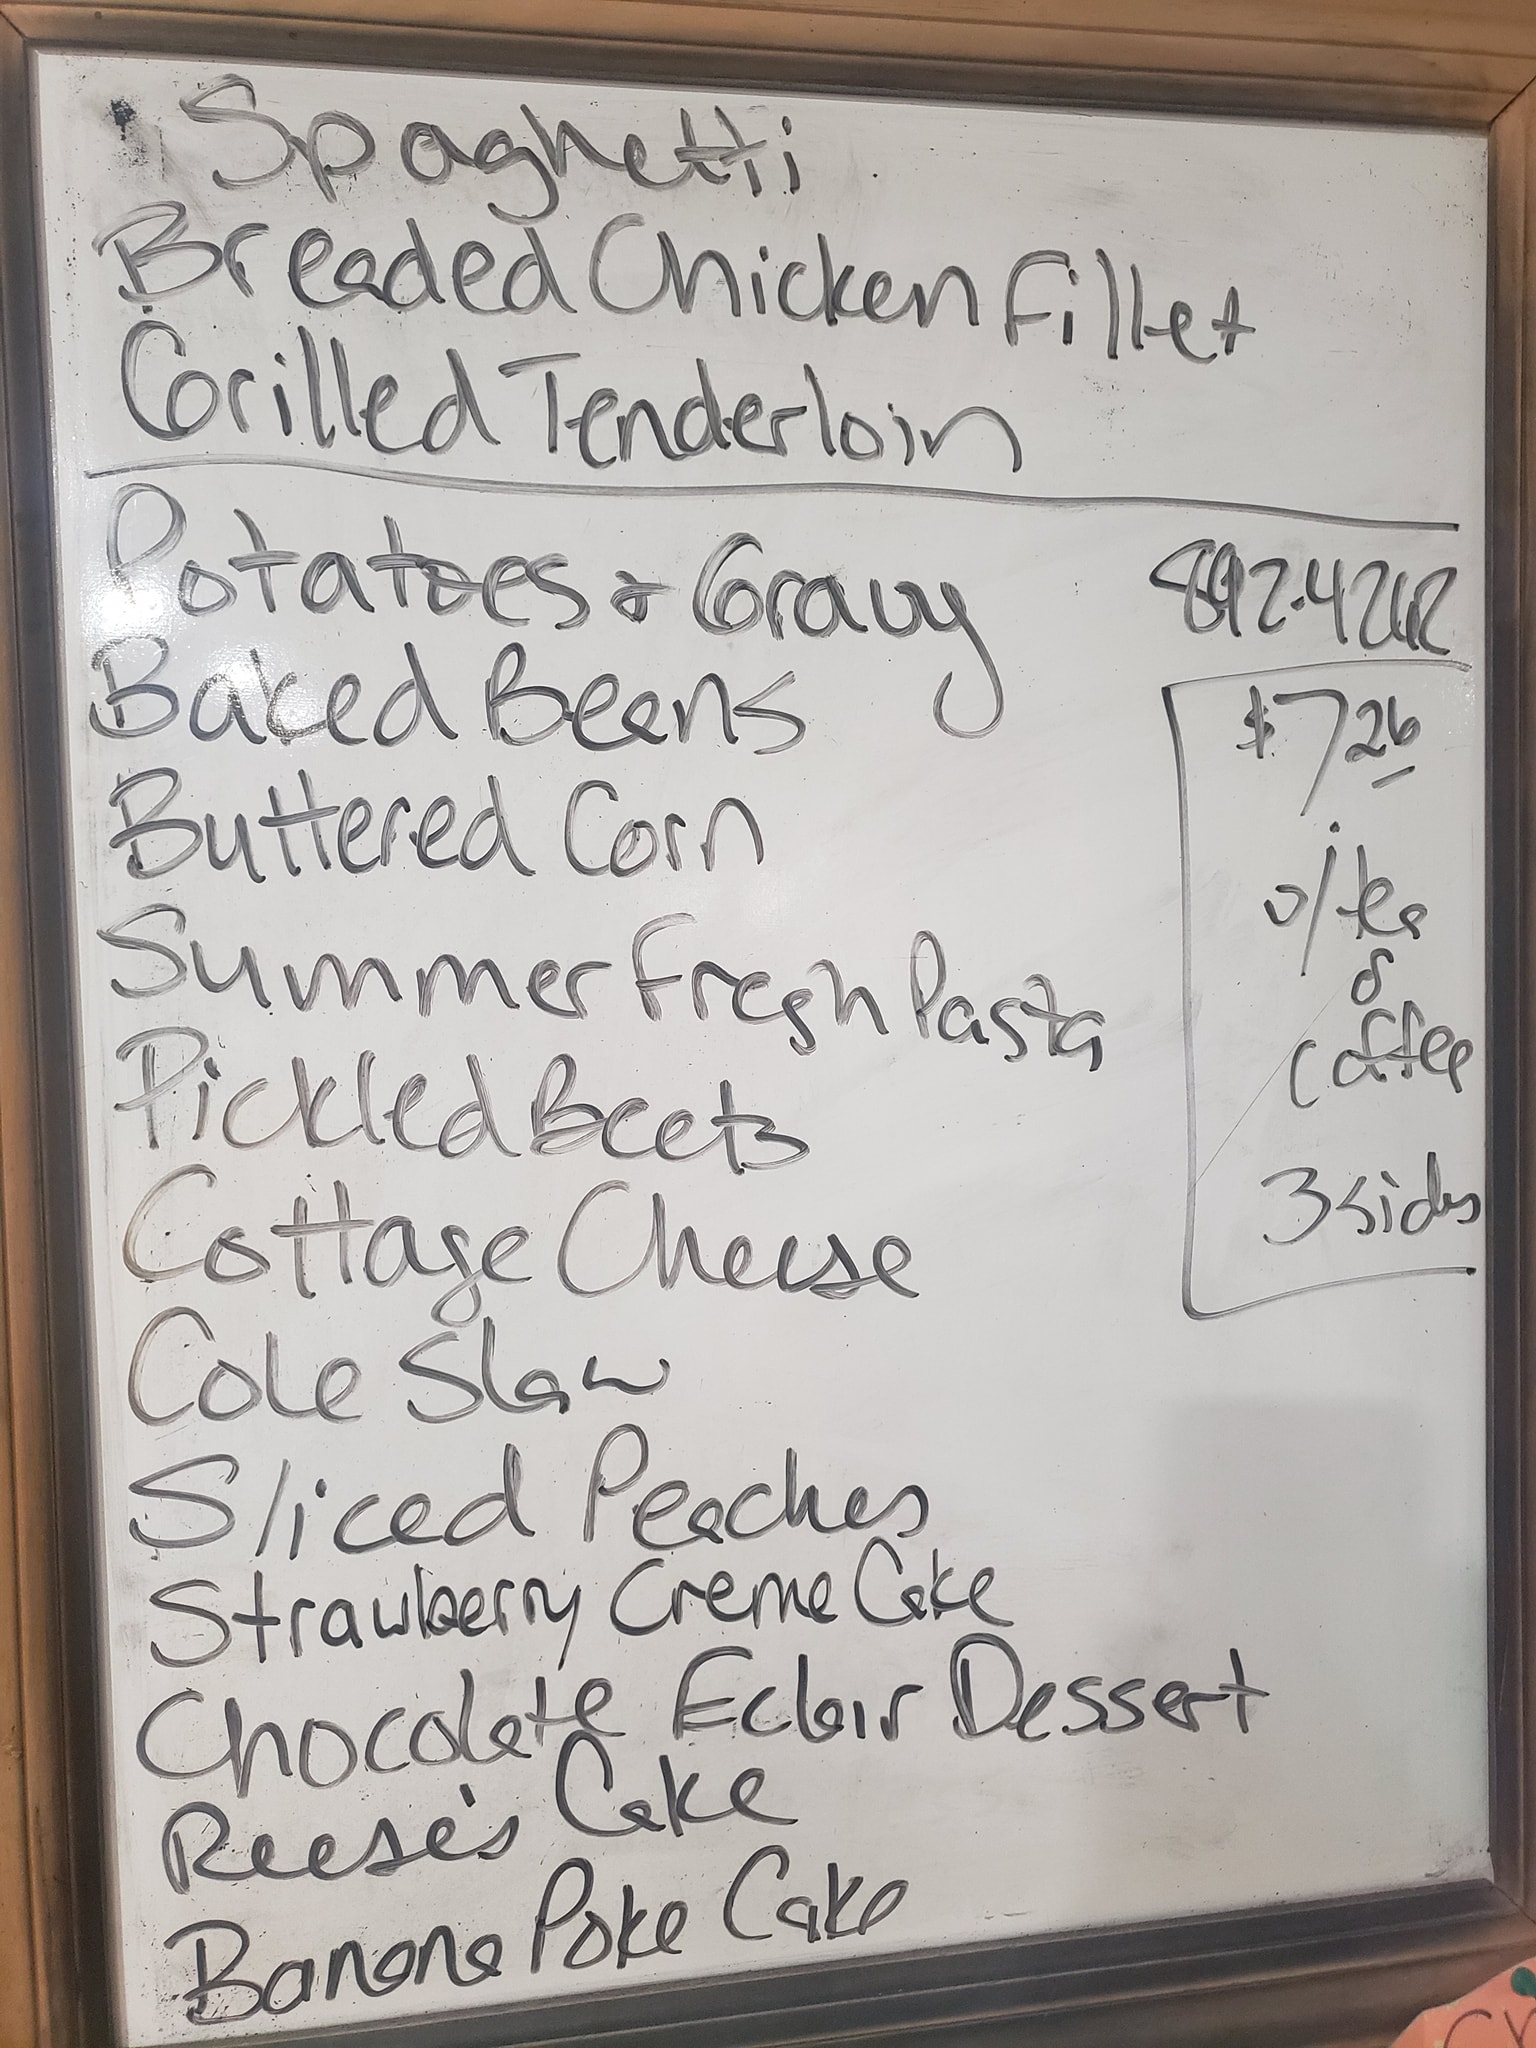 Spaghetti
Breaded Chicken Fillet
Grilled Tenderloin
Potatoes & Gravy
Baked Beans
Buttered Corn
Summer Fresh Pasta
Pickled Beets
Cottage Cheese
Cole Slaw
Sliced Peaches
Strawberry Creme Cake
Chocolate Eclair Dessert
Reese's Cake
Banana Poke Cake
$7 26
w/ tea
or
coffee
3 sides